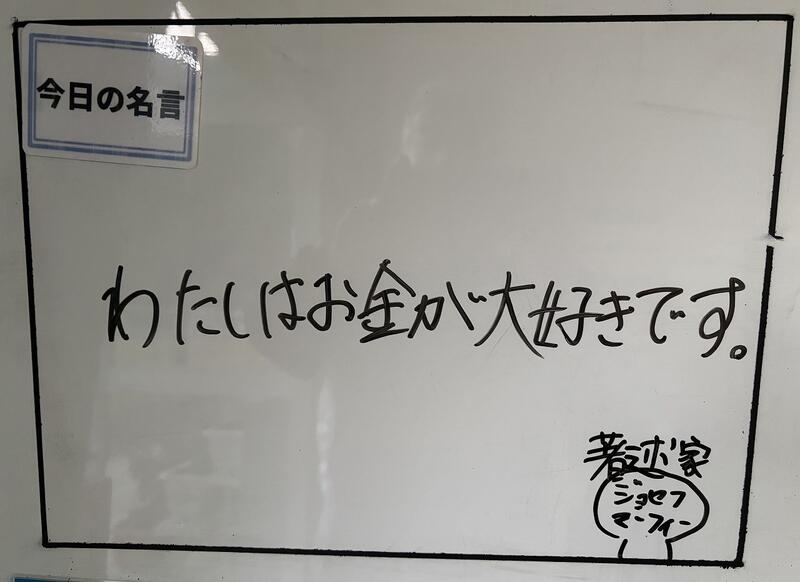 今日の名言
わたしはお金が大好きです。
著述家
ジョセフ
マーフィー